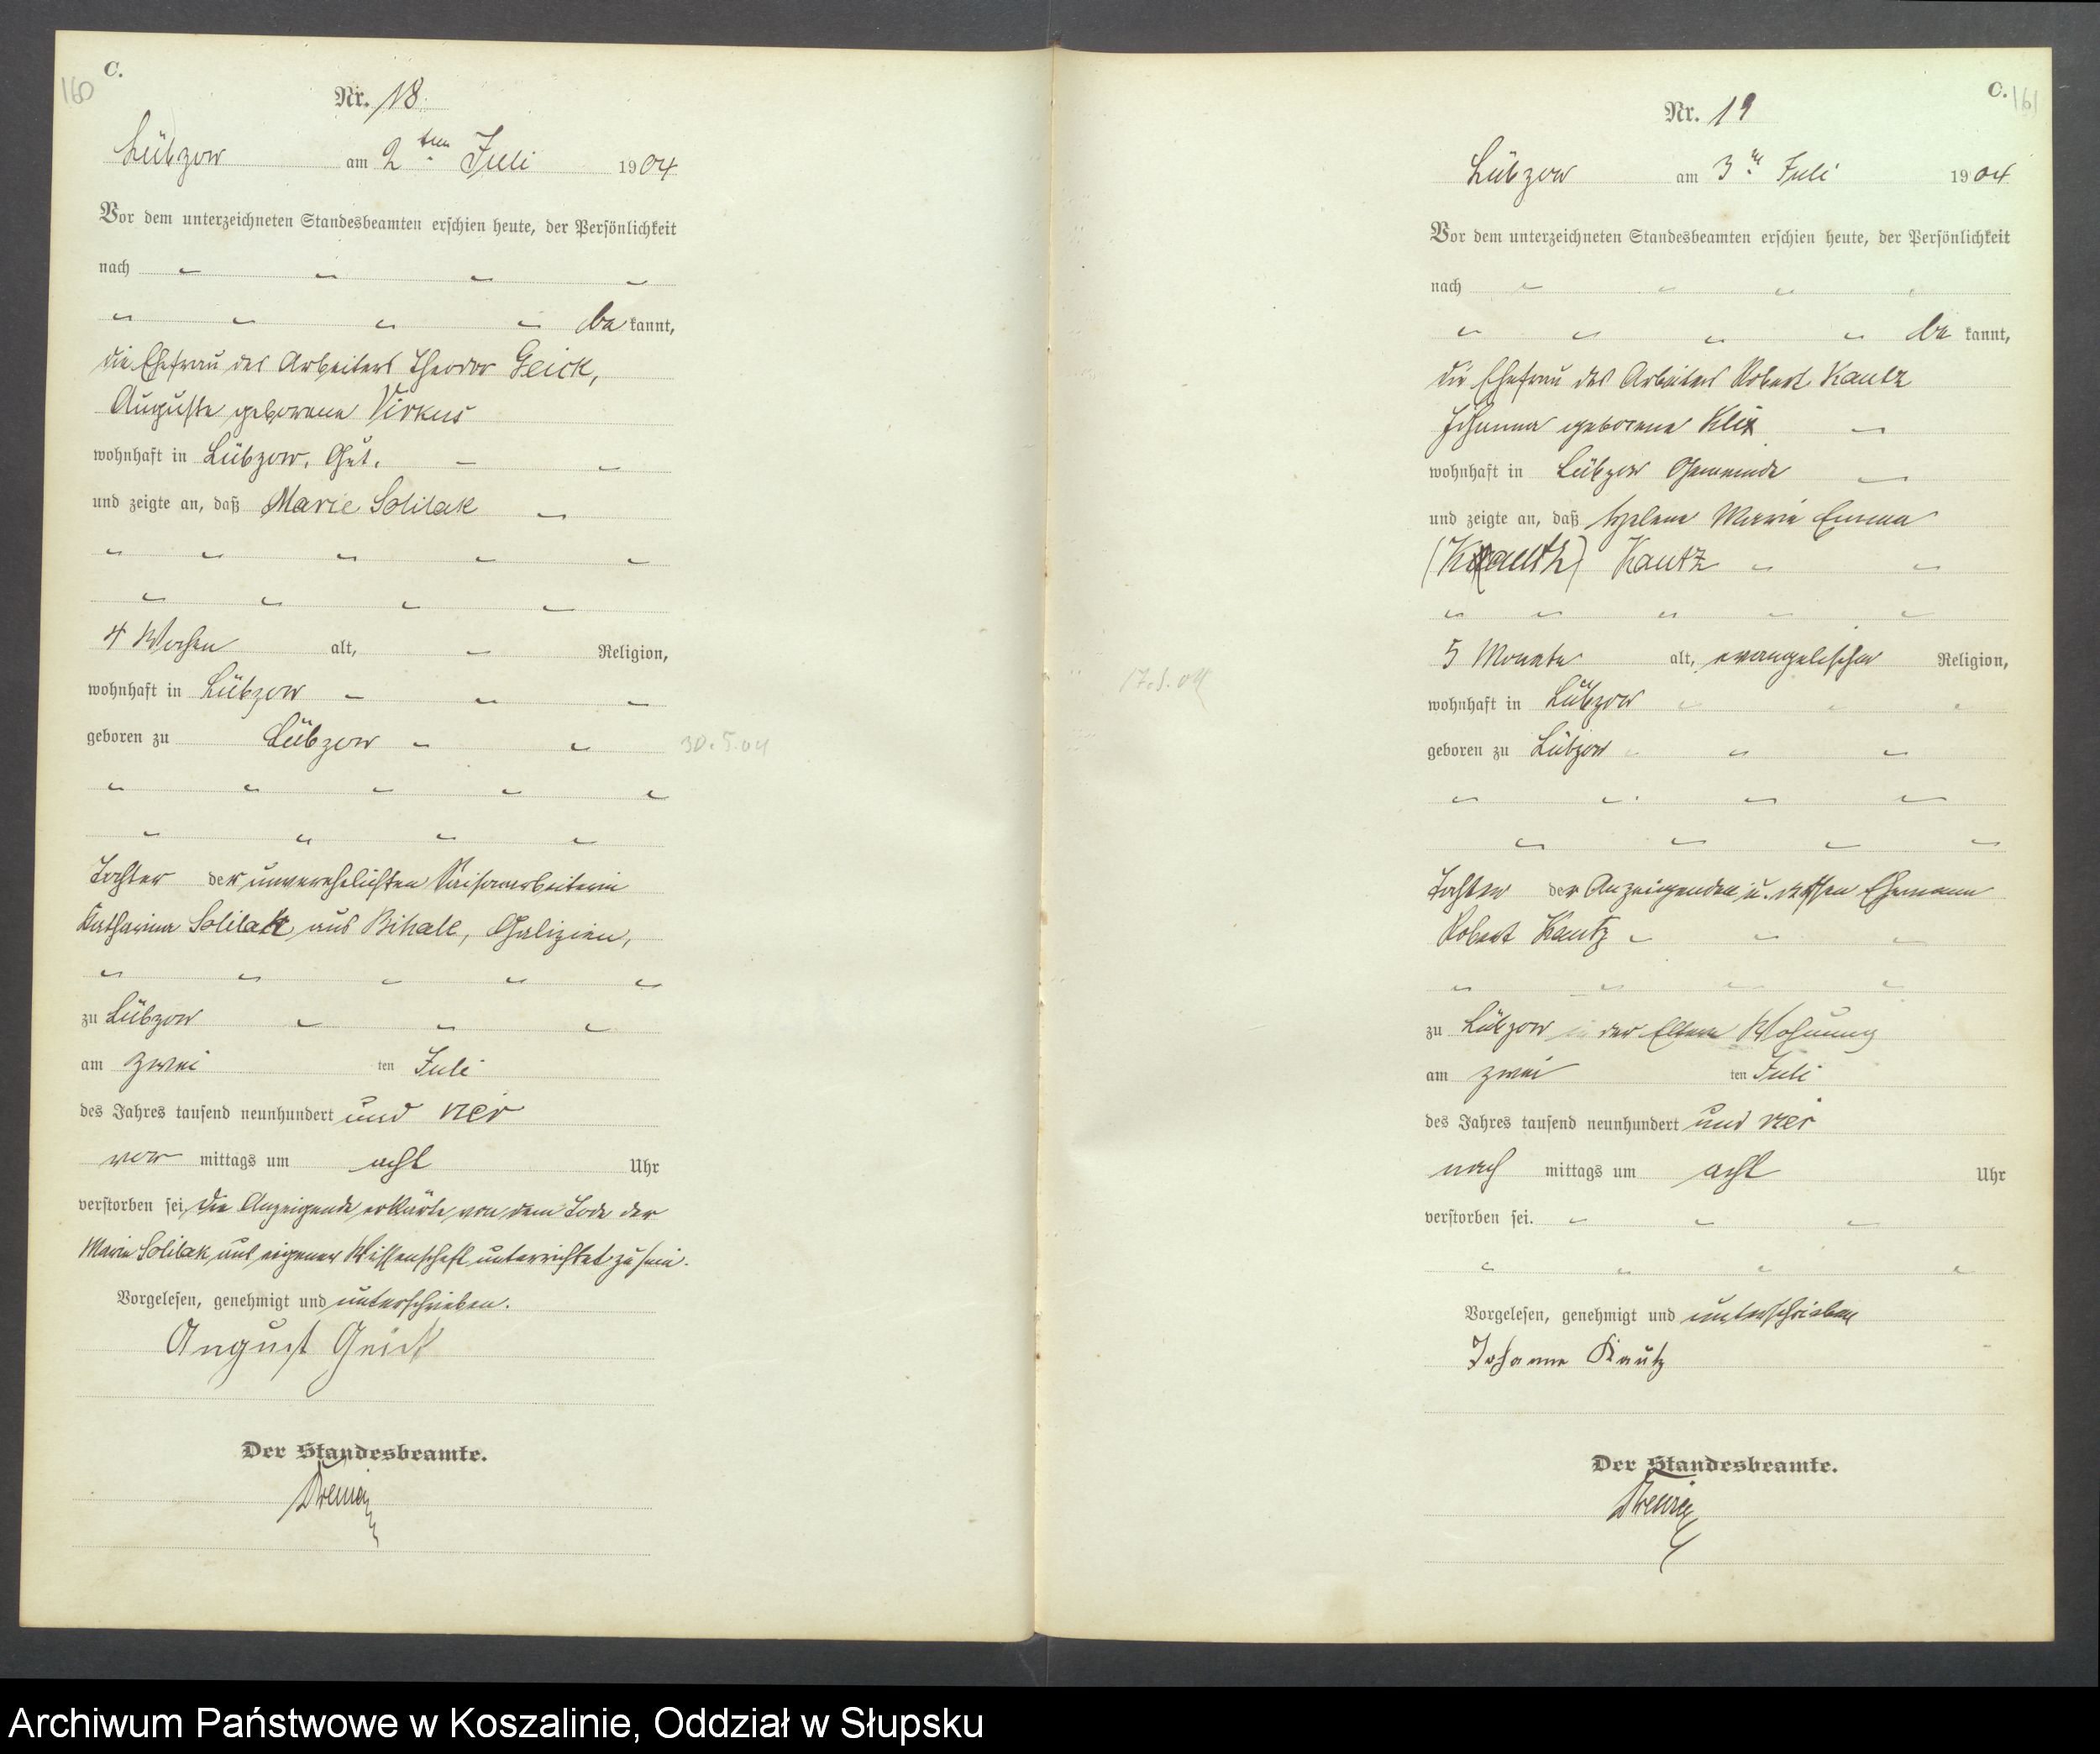 160
C.
Nr. 18.
Lübzow am 2ten Juli 1904
Vor dem unterzeichneten Standesbeamten erschien heute, der Persönlichkeit
nach
be kannt,
die Ehefrau des Arbeiters Theodor Geick,
Auguste geborene Virkus
wohnhaft in Lübzow, Gut.
und zeigte an, daß Marie Solilak
4 Wochen alt, Religion,
wohnhaft in Lübzow
geboren zu Lübzow
30.5.04
Tochter der unverehelichten Saisonarbeiterin
Katharina Solilak aus Bihale, Galizien,
zu Lübzow
am zwei ten Juli
des Jahres tausend neunhundert und vier
vor mittags um acht Uhr
verstorben sei, die Anzeigende erklärte von dem Tode der
Marie Solilak aus eigener Wissenschaft unterrichtet zu sein.
Vorgelesen, genehmigt und unterschrieben.
August Geick
Der Standesbeamte.
C.
161
Nr. 19
Lübzow am 3ten Juli 1904
Vor dem unterzeichneten Standesbeamten erschien heute, der Persönlichkeit
nach
be kannt,
die Ehefrau des Arbeiters Robert Kautz
Johanna geborene Klix
wohnhaft in Lübzow Gemeinde
und zeigte an, daß Helene Marie Emma
Kautz
5 Monate alt, evangelischer Religion,
wohnhaft in Lübzow
geboren zu Lübzow
Tochter der Anzeigenden u. dessen Ehemann
Robert Kautz
zu Lübzow in der Eltern Wohnung
am zwei ten Juli
des Jahres tausend neunhundert und vier
nach mittags um acht Uhr
verstorben sei.
Vorgelesen, genehmigt und unterschrieben
Johanne Kautz
Der Standesbeamte.
Archiwum Państwowe w Koszalinie, Oddział w Słupsku